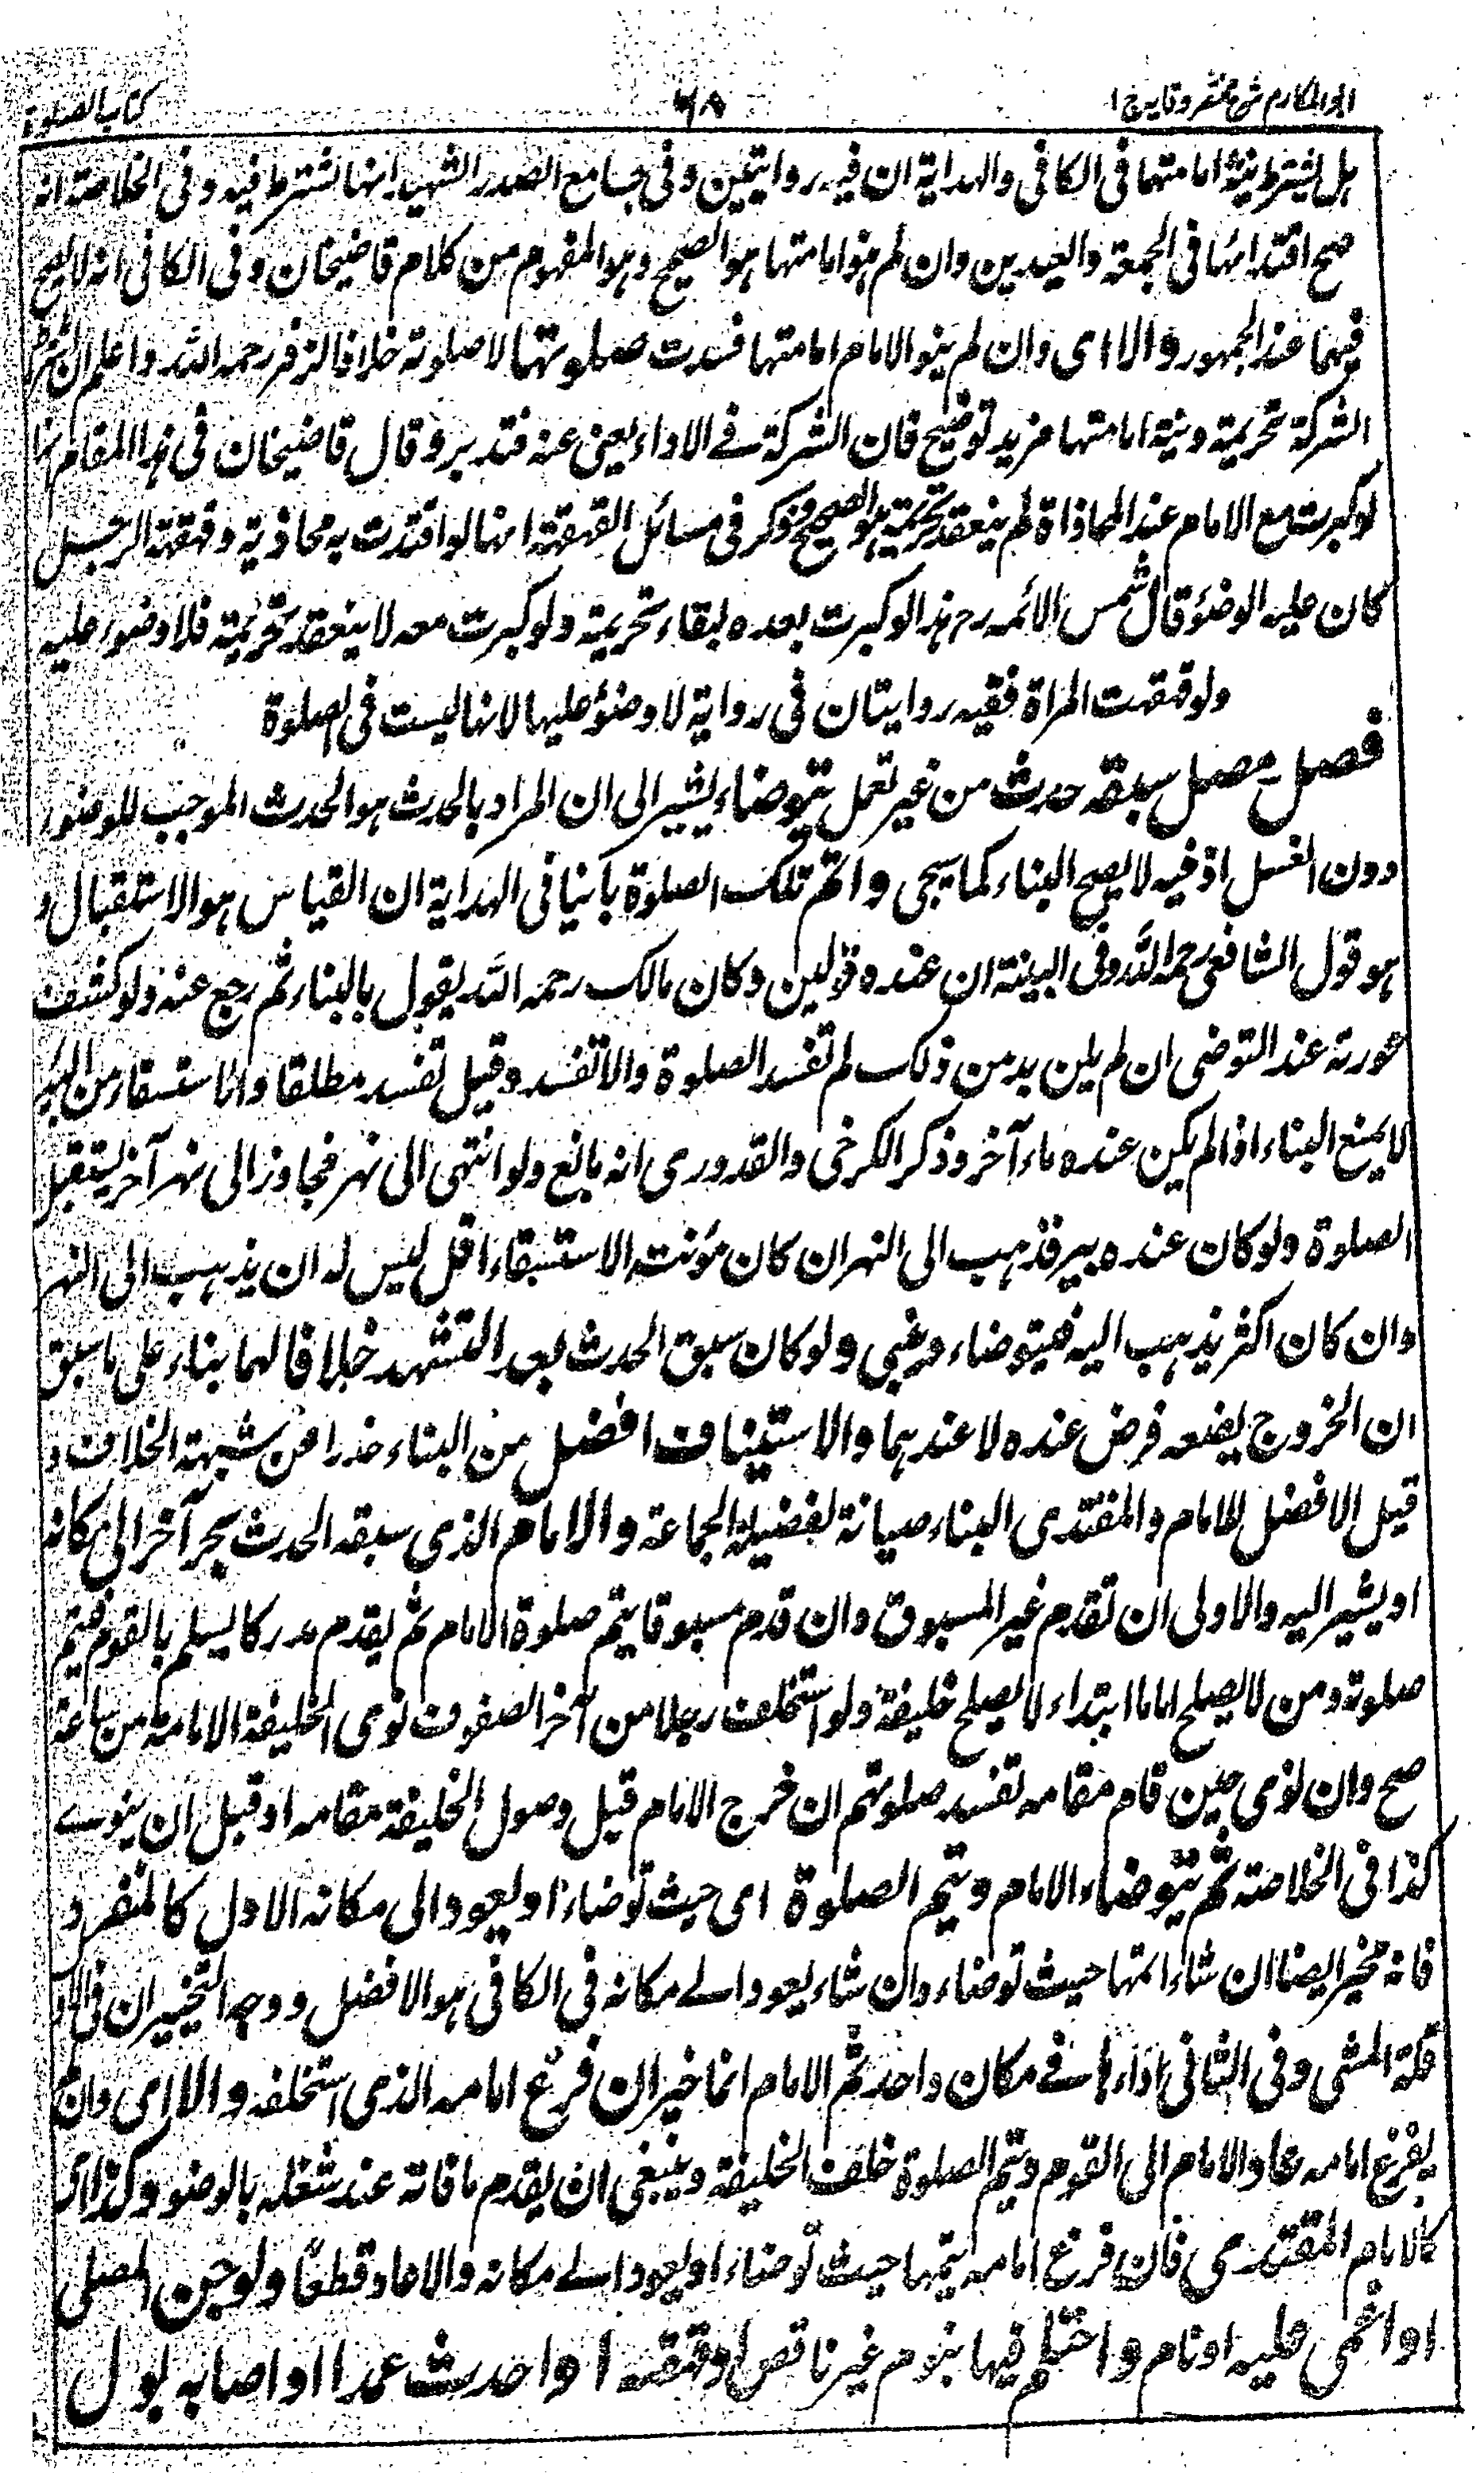 ابو المکارم شرح مختصر وقایہ ج ۱
۶۸
کتاب الصلوة
ہل یشترط نیة امامتہا فی الکافی والہدایة ان فیہ روایتین وفی جامع الصدر الشہید انہا تشترط فیہ وفی الخلاصة انہ
صح اقتدائہا فی الجمعة والعیدین وان لم ینو امامتہا ہو الصحیح وہو المفہوم من کلام قاضیخان وفی الکافی انہ لا یصح
فیہما عند الجمہور والا ای وان لم ینو الامام امامتہا فسدت صلوتہا لا صلوتہ خلافا لزفر رحمہ اللہ واعلم ان
الشرکة تحریمة ونیة امامتہا مزید توضیح فان الشرکة فے الاداء یغنی عنہ فتدبر وقال قاضیخان فی ہذا المقام انہا
لو کبرت مع الامام عند المحاذاة لم ینعقد تحریمتہ ہو الصحیح وذکر فی مسائل القہقہة انہا لو اقتدت بہ محاذیة وقہقہة الرجل
کان علیہ الوضوء قال شمس الائمہ رح ہذا لو کبرت بعدہ لبقاء تحریمتہ ولو کبرت معہ لا ینعقد تحریمتہ فلا وضوء علیہ
ولو قہقہت المراة ففیہ روایتان فی روایة لا وضوء علیہا لانہا لیست فی الصلوة
فصل مصل سبقہ حدث من غیر تعمل یتوضاء یشیر الی ان المراد بالحدث ہو الحدث الموجب للوضوء
دون الغسل اذ فیہ لا یصح البناء کما سیجی واتم تلک الصلوة بانیا فی الہدایة ان القیاس ہو الاستقبال و
ہو قول الشافعی رحمہ اللہ وفی البینة ان عندہ قولین وکان مالک رحمہ اللہ یقول بالبناء ثم رجع عنہ ولو کشف
عورتہ عند التوضی ان لم یکن بد من ذلک لم تفسد الصلوة والا تفسد وقیل تفسد مطلقا واما استسقاء من البیر
لا یمنع البناء اذا لم یکن عندہ ماء آخر وذکر الکرخی والقدوری انہ مانع ولو انتہی الی نہر فجاوز الی نہر آخر یستقبل
الصلوة ولو کان عندہ بیر فذہب الی النہر ان کان مؤنت الاستسقاء اقل لیس لہ ان یذہب الی النہر
وان کان اکثر یذہب الیہ فیتوضاء ویبنی ولو کان سبق الحدث بعد التشہد خلافا لہما بناء علی ما سبق
ان الخروج بصنعہ فرض عندہ لا عندہما والاستیناف افضل من البناء حذرا من شبہة الخلاف و
قیل الافضل للامام والمقتدی البناء صیانة لفضیلة الجماعة والامام الذی سبقہ الحدث یجر آخر الی مکانہ
او یشیر الیہ والاولی ان تقدم غیر المسبوق وان قدم مسبوقا یتم صلوة الامام ثم یقدم مدرکا یسلم بالقوم فیتم
صلوتہ ومن لا یصلح اماما ابتداء لا یصلح خلیفة ولو استخلف رجلا من آخر الصفوف نوی الخلیفة الامامة من ساعة
صح وان نوی حین قام مقامہ تفسد صلوتہم ان خرج الامام قبل وصول الخلیفة مقامہ او قبل ان ینوے
کذا فی الخلاصة ثم یتوضاء الامام ویتم الصلوة ای حیث توضاء او یعود الی مکانہ الاول کالمنفرد
فانہ مخیر ایضا ان شاء اتمہا حیث توضاء وان شاء یعود الے مکانہ فی الکافی ہو الافضل ووجہ التخییر ان فی الاول
قلة المشی وفی الثانی اداءہا فے مکان واحد ثم الامام انما خیر ان فرغ امامہ الذی استخلفہ والا ای وان لم
یفرغ امامہ عاد الامام الی القوم ویتم الصلوة خلف الخلیفة وینبغی ان یقدم ما فاتہ عند شغلہ بالوضوء وکذا ای
کالامام المقتدی فان فرغ امامہ یتمہا حیث توضاء او یعود الے مکانہ والا عاد قطعا ولو جن المصلی
او اغمی علیہ او نام واحتلم فیہا بنوم غیر ناقص او قہقہہ او احدث عمدا او اصابہ بول